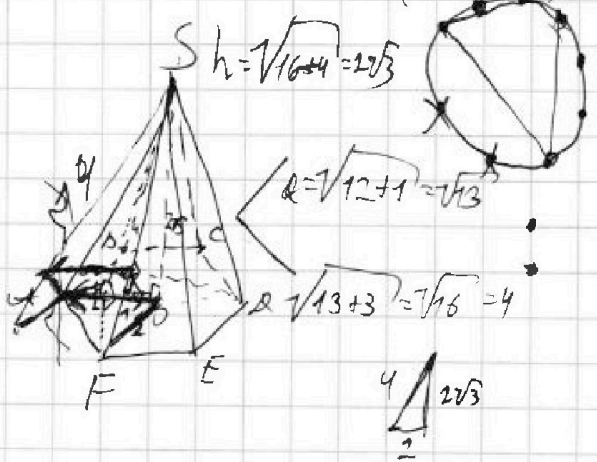 S h=√16+4=2√3
4
√12+1=√13
C
√13+3=√16=4
F E
4 2√3
2